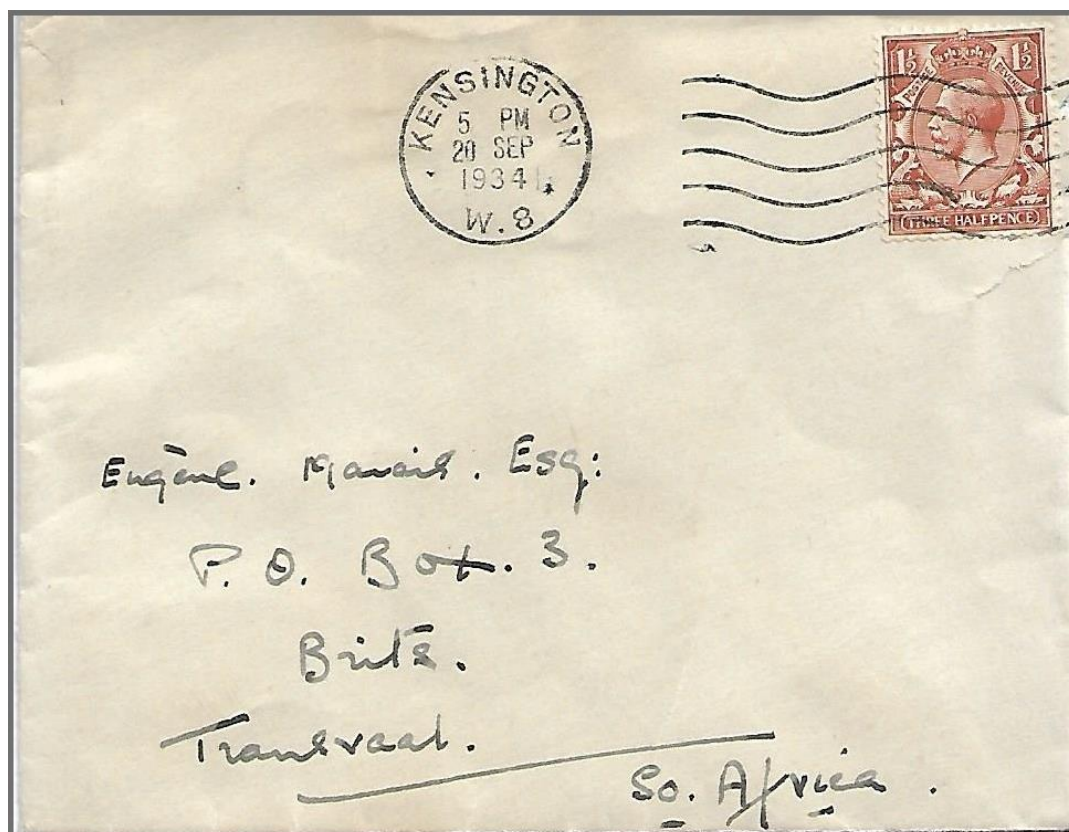 KENSINGTON
5 PM
20 SEP
1934
W.8
1½ 1½
POSTAGE REVENUE
THREE HALFPENCE
Eugène. Marais. Esq:
P. O. Box. 3.
Brits.
Transvaal.
So. Africa.